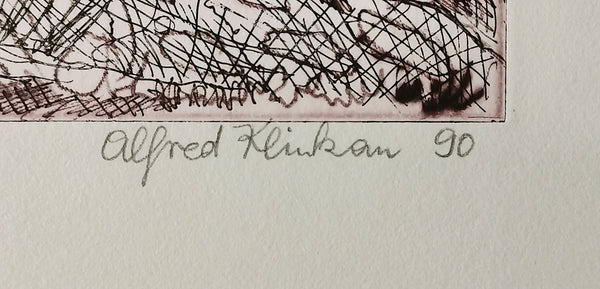 Alfred Klinkan 90